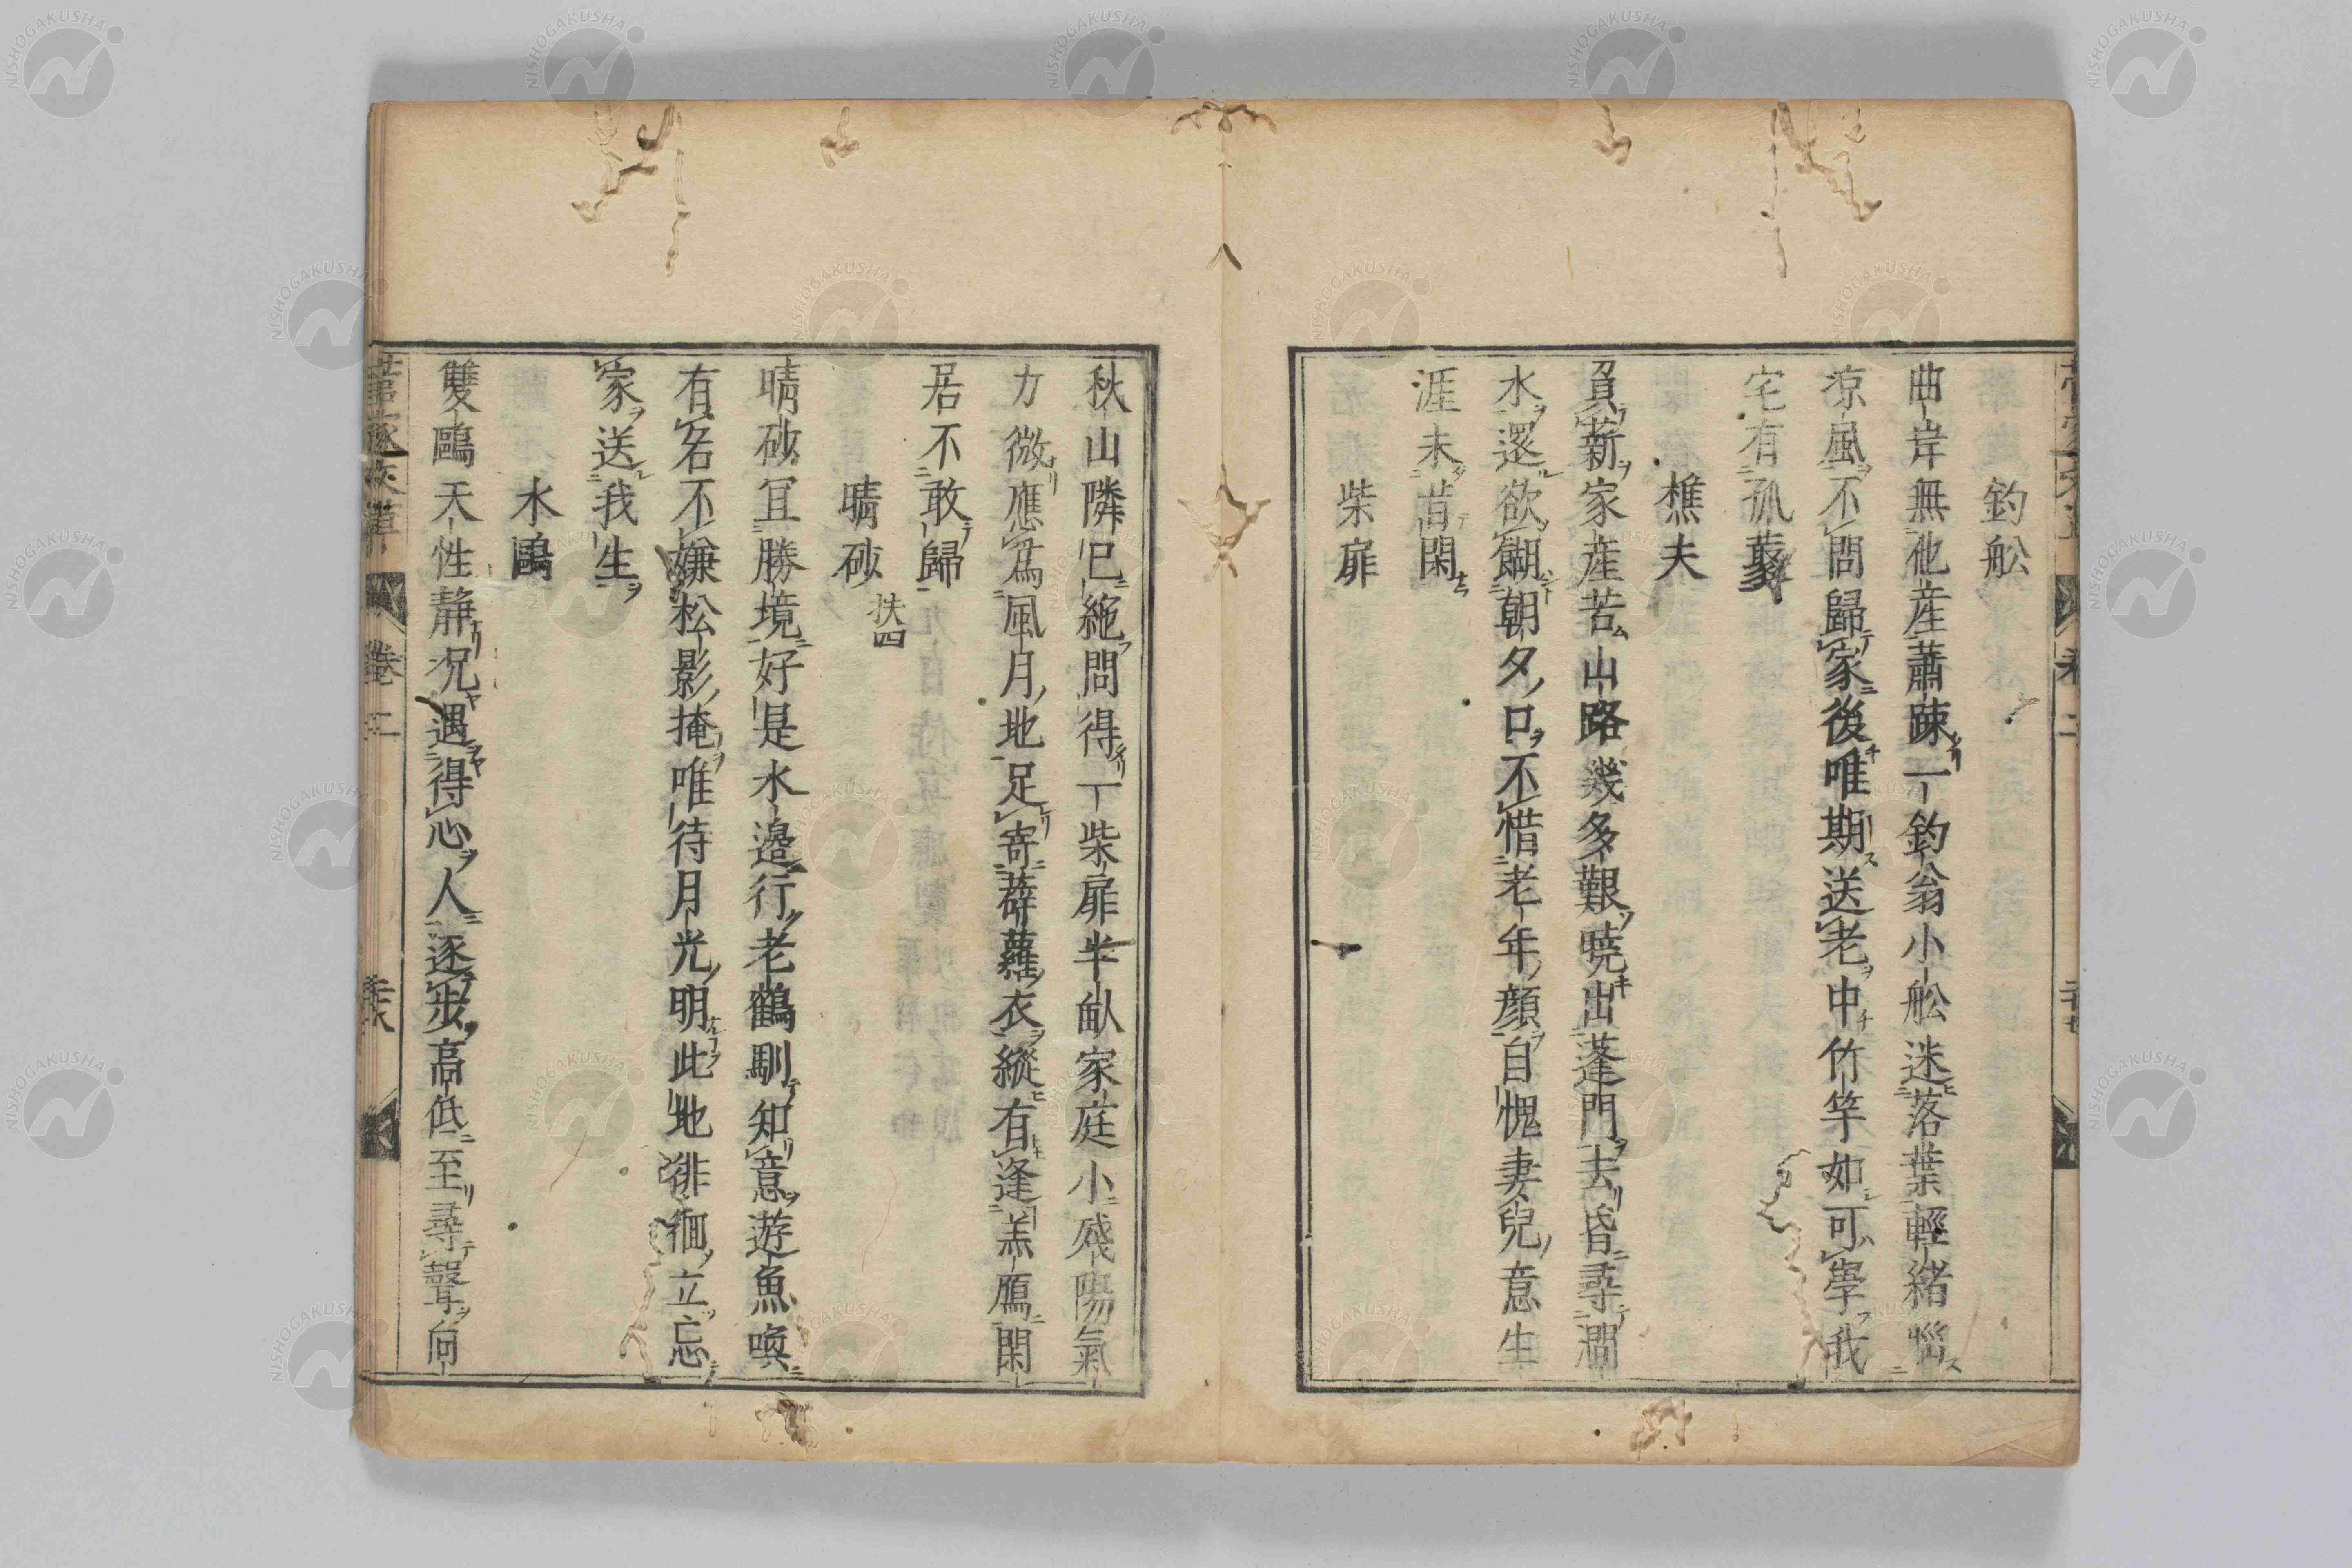 釣舩
曲岸無他産蕭踈一釣翁小舩迷落葉輕緒惱
涼風不問歸家後唯期送老中竹竿如可學我
宅有孤叢
樵夫
負薪家産苦山路幾多艱曉出蓬門去昏尋澗
水還欲餬朝夕口不惜老年顔自愧妻兒意生
涯未昔閑
柴扉
秋山隣已絶問得一柴扉半畝家庭小殘陽氣
力微應爲風月地足寄薜蘿衣縱有逢羔鴈閑
居不敢歸
晴砂 扶四
晴砂冝勝境好是水邉行老鶴馴知意遊魚喚
有名不嫌松影掩唯待月光明此地徘徊立忘
家送我生
水鷗
雙鷗天性靜况遇得心人逐歩高低至尋聲向
菅家文草 卷二 共
NISHOGAKUSHA